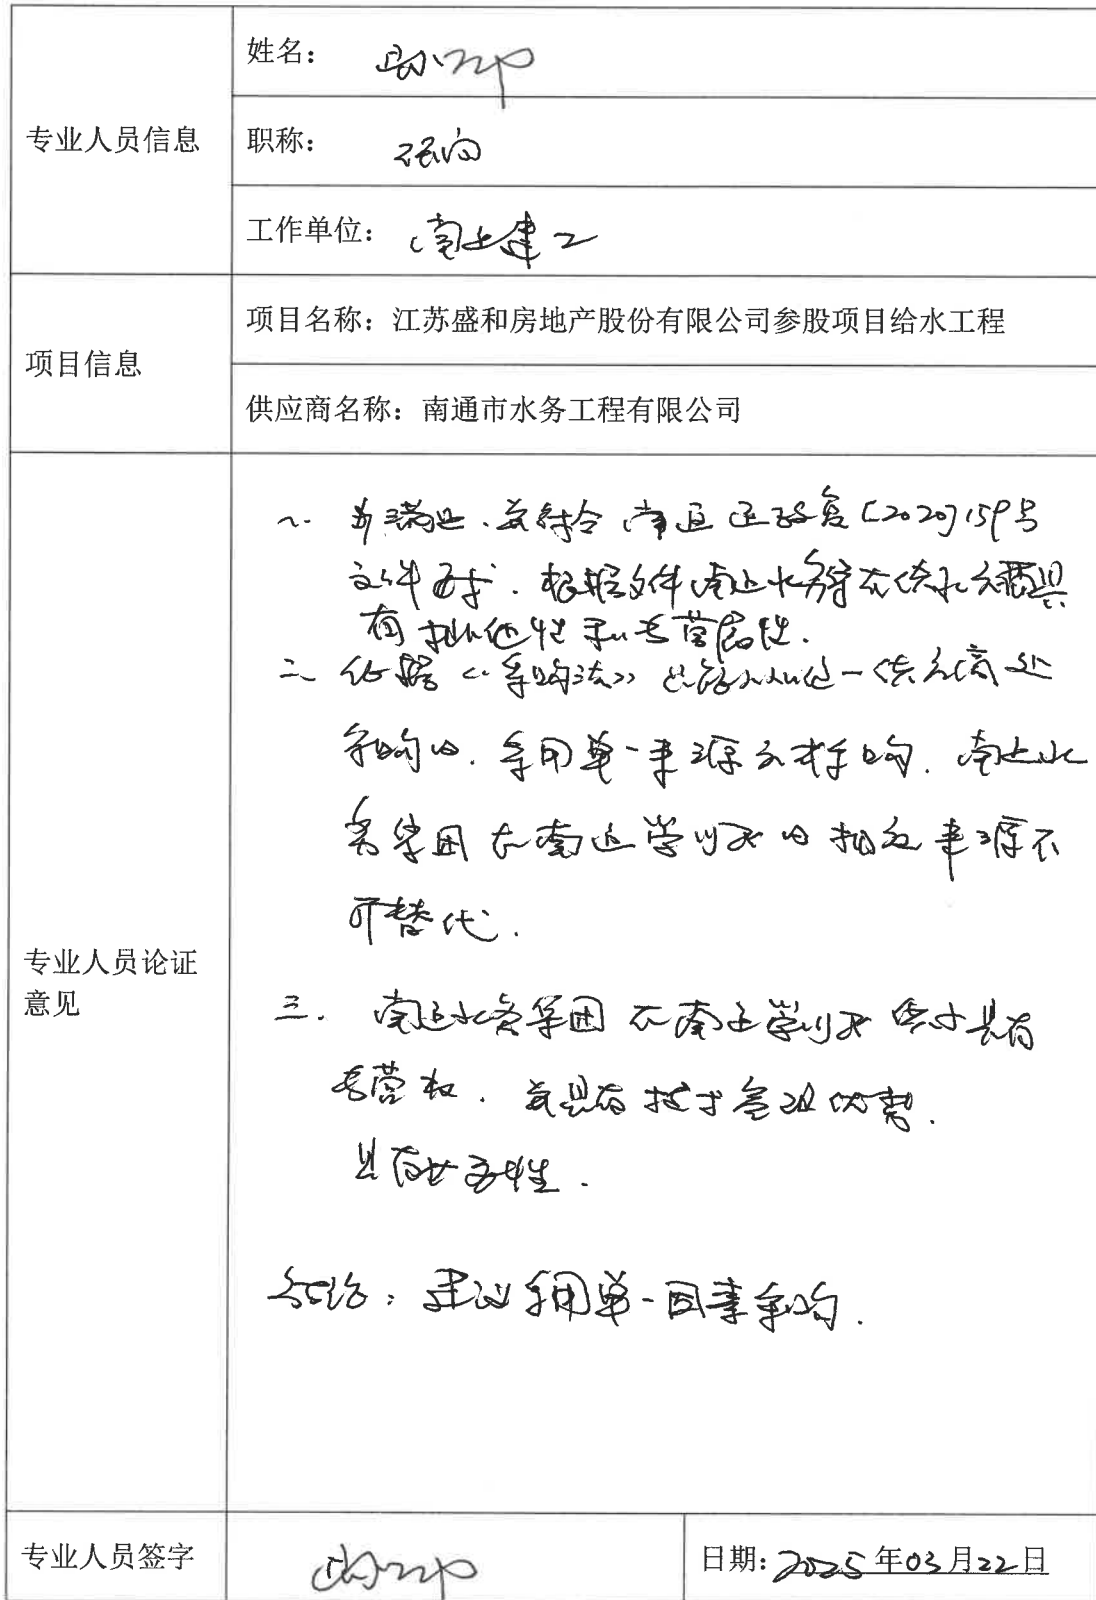 专业人员信息
姓名：
职称：
工作单位：南通建工
项目信息
项目名称：江苏盛和房地产股份有限公司参股项目给水工程
供应商名称：南通市水务工程有限公司
专业人员论证
意见
一、为满足、并符合南通 政复[2020]159号
文件要求. 根据文件南通水务 在供水 具
有排他性和专营属性.
二、依据《采购法》只能从唯一供应商处
采购的. 采用单一来源方式采购. 南通水
务集团在南通 的 来源不
可替代.
三. 南通水务集团在南通 供水具有
专营权. 并具有技术管理优势.
具有 性.
结论：建议采用单一 采购.
专业人员签字
日期：2025年03月22日